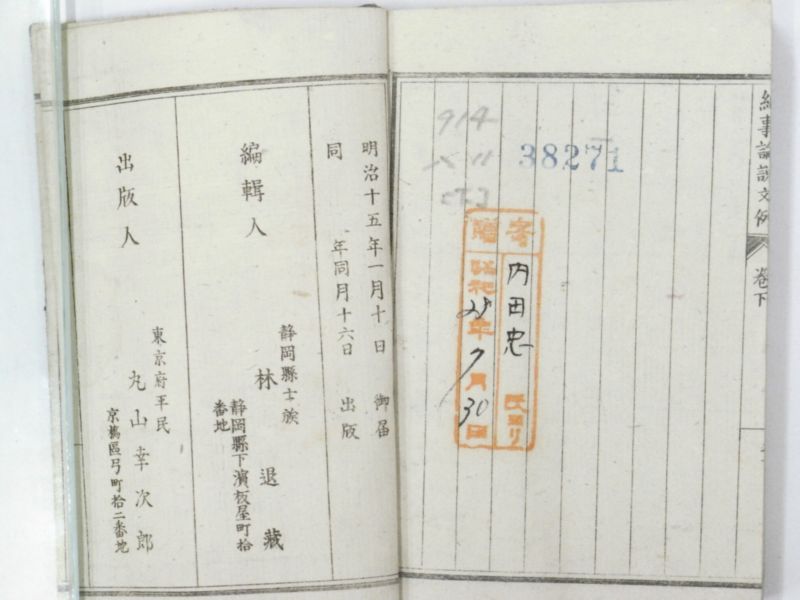 紀事論説文例
卷下
38271
914
寄贈
内田忠 氏ヨリ
昭和28年7月30日
明治十五年一月十日 御届
同 年同月十六日 出版
編輯人
静岡縣士族
林 退藏
静岡縣下濱板屋町拾
番地
出版人
東京府平民
丸山幸次郎
京橋區弓町拾二番地